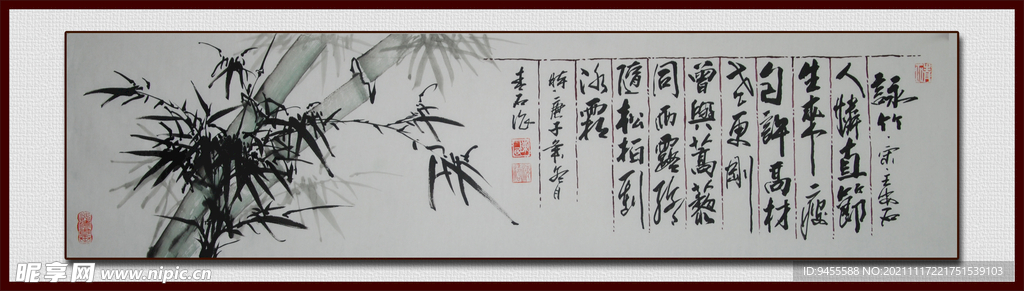 詠竹 宋 王安石
人憐直節
生來瘦
自許高材
老更剛
曾與蒿藜
同雨露終
隨松柏到
冰霜
時庚子年冬月
昵享网 www.nipic.cn
ID:9455588 NO:20211117221751539103